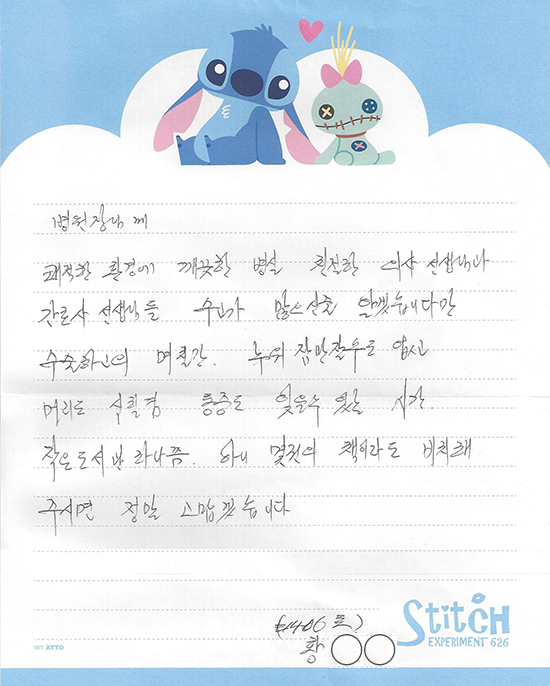 병원장님께
쾌적한 환경에 깨끗한 병실 친절한 의사 선생님과
간호사 선생님들 수고가 많으신줄 알겠습니다만
수술하고의 며칠간. 누워 잠만 잘 수도 없고
머리도 식힐겸 통증도 잊을수 있는 시간
작은도서관 하나쯤. 아니 몇권의 책이라도 비치해
주시면 정말 고맙겠습니다
(1406호)
황○○
StitcH
EXPERIMENT 626
ATTO